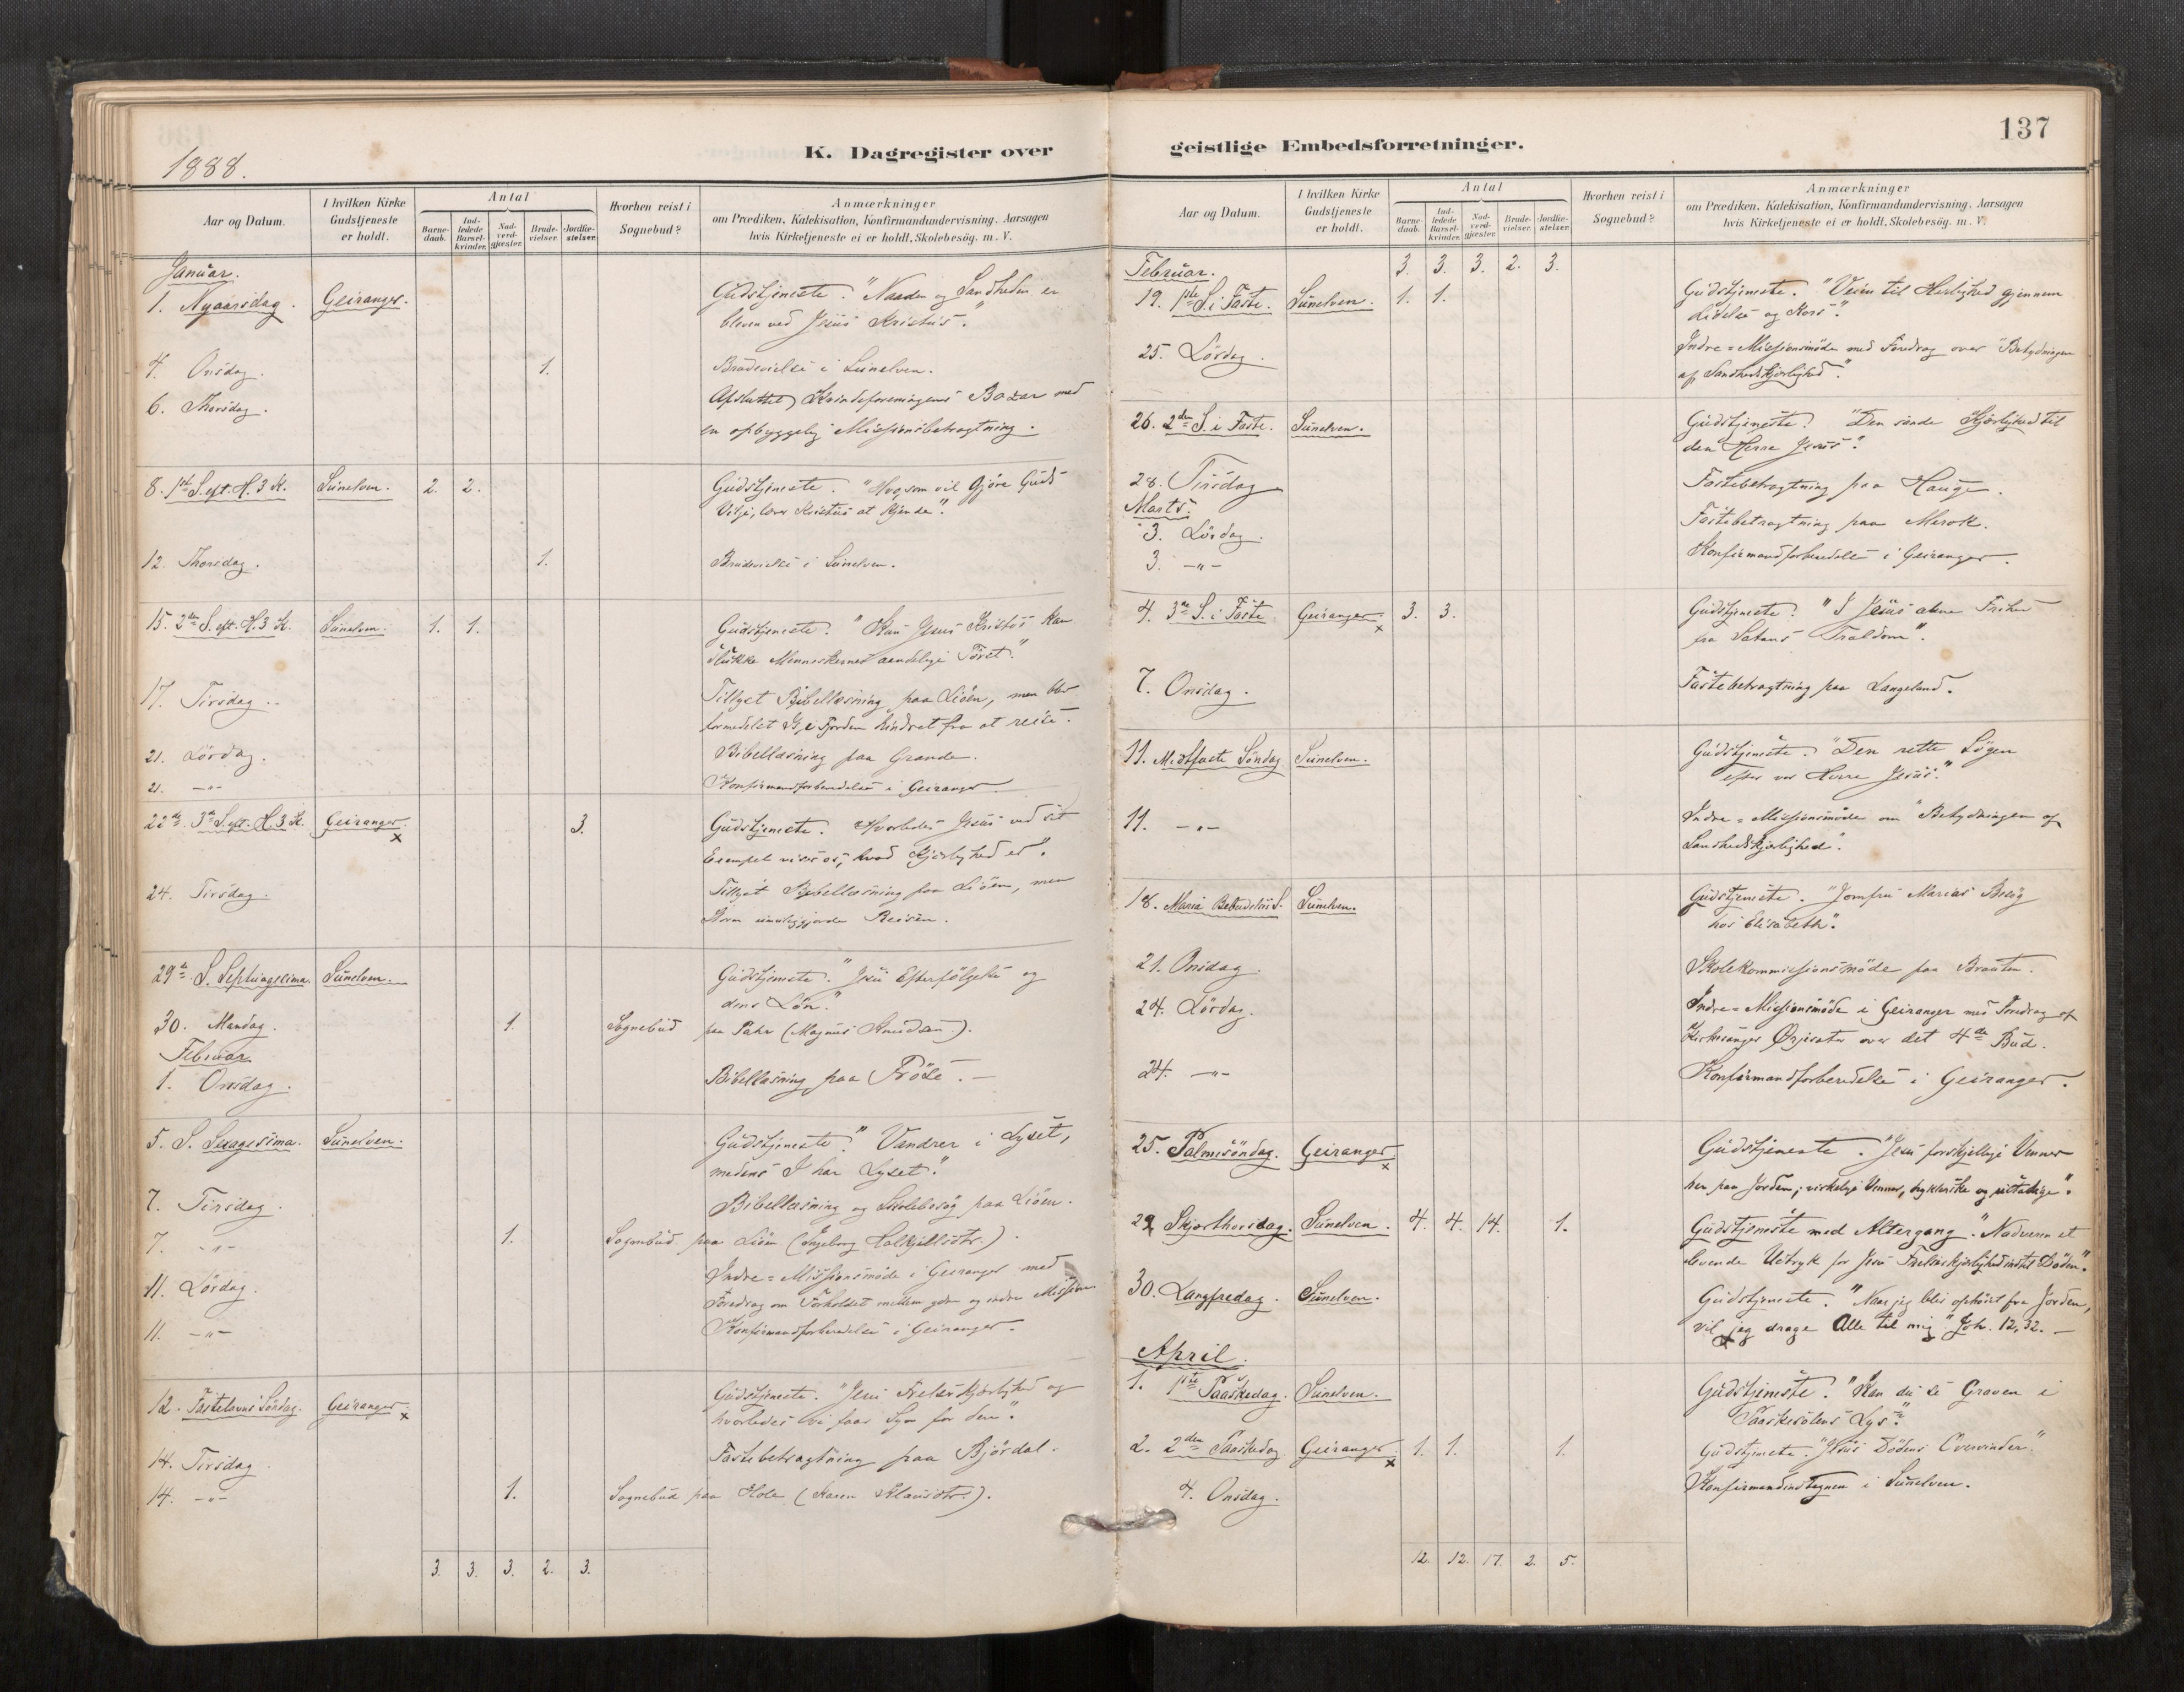 1888.
K. Dagregister over
Aar og Datum.
I hvilken Kirke Gudstjeneste er holdt.
Antal
Barne-daab.
Ind-ledede Barsel-kvinder.
Nad-verd-gjæster.
Brude-vielser.
Jordfæ-stelser.
Hvorhen reist i Sognebud?
Anmærkninger
om Prædiken, Katekisation, Konfirmandundervisning, Aarsagen
hvis Kirketjeneste ei er holdt, Skolebesøg. m. V.
Januar.
1. Nyaarsdag. Geiranger. Gudstjeneste. "Naaden og Sandheden er
bleven ved Jesus Kristus."
4. Onsdag. 1. Brudevielse i Sunelven.
6. Thorsdag. Afsluttet Kvindeforeningens Bazar med
en opbyggelig Missionsbetragtning.
8. 1ste S. eft. H. 3 K. Sunelven. 2. 2. Gudstjeneste. "Hvo, som vil gjøre Guds
Vilje, lærer Kristus at kjende".
12. Thorsdag. 1. Brudevielse i Sunelven.
15. 2den S. eft. H. 3 K. Sunelven. 1. 1. Gudstjeneste. "Kun Jesus Kristus kan
slukke Menneskenes aandelige Tørst."
17. Tirsdag. Tillyst Bibellæsning paa Liøen, men blev
formedelst Is i Fjorden hindret fra at reise.
21. Lørdag. Bibellæsning paa Grande.
21. -"- Konfirmandforberedelse i Geiranger.
22de 3die S. eft. H. 3 K. Geiranger. x 3. Gudstjeneste. Hvorledes Jesus ved sit
Exempel viser os, hvad Kjærlighed er".
24. Tirsdag. Tillyst Bibellæsning paa Liøen, men
Storm umuliggjorde Reisen.
29de S. Septuagesima. Sunelven. Gudstjeneste. "Jesu Efterfølgelse og
dens Løn."
30. Mandag. 1. Sognebud paa (Magnus Knudsen.).
Februar.
1. Onsdag. Bibellæsning paa Frøse. -
5. S. Sexagesima. Sunelven. Gudstjeneste. "Vandrer i Lyset,
medens I har Lyset."
7. Tirsdag. Bibellæsning og Skolebesøg paa Liøen.
7. -"- 1. Sognebud paa Liøen (Ingeborg
11. Lørdag. Indre=Missionsmøde i Geiranger med
Foredrag om Forholdet mellem ydre og indre Mission
11. -"- Konfirmandforberedelse i Geiranger.
12. Fastelavns Søndag. Geiranger. x Gudstjeneste. "Jesu Frelserkjærlighed og
hvorledes vi faar Syn for den".
14. Tirsdag. Fastebetragtning paa Bjørdal.
14. -"- 1. Sognebud paa Hole (Karen
3. 3. 3. 2. 3.
geistlige Embedsforretninger.
137
Aar og Datum.
I hvilken Kirke Gudstjeneste er holdt.
Antal
Barne-daab.
Ind-ledede Barsel-kvinder.
Nad-verd-gjæster.
Brude-vielser.
Jordfæ-stelser.
Hvorhen reist i Sognebud?
Anmærkninger
om Prædiken, Katekisation, Konfirmandundervisning, Aarsagen
hvis Kirketjeneste ei er holdt, Skolebesøg. m. V.
Februar. 3. 3. 3. 2. 3.
19. 1ste S. i Faste. Sunelven. 1. 1. Gudstjeneste. "Veien til Herlighed gjennem
Lidelse og Kors".
25. Lørdag. Indre=Missionsmøde med Foredrag over "Betydningen
af Sandhedskjærlighed".
26. 2den S. i Faste. Sunelven. Gudstjeneste. "Den sande Kjærlighed til
den Herre Jesus".
28. Tirsdag Fastebetragtning paa Hauge.
Marts.
3. Lørdag. Fastebetragtning paa Merok.
3. -"- Konfirmandforberedelse i Geiranger.
4. 3die S. i Faste Geiranger. x 3. 3. Gudstjeneste. "I Jesus alene Frihed
fra Satans Trældom".
7. Onsdag. Fastebetragtning paa Langeland.
11. Midtfaste Søndag Sunelven. Gudstjeneste. "Den rette Søgen
efter vor Herre Jesus."
11. -"- Indre=Missionsmøde om "Betydningen af
Sandhedskjærlighed".
18. Mariæ Bebudelses S. Sunelven. Gudstjeneste. "Jomfru Marias Besøg
hos Elisabeth".
21. Onsdag. Skolekommissionsmøde paa Braaten.
24. Lørdag. Indre=Missionsmøde i Geiranger med Foredrag af
Kirkesanger over det 4de Bud.
24. -"- Konfirmandforberedelse i Geiranger.
25. Palmesøndag. Geiranger x Gudstjeneste. "Jesu forskjellige Venner
her paa Jorden; virkelige Venner, hykkelske og
29. Skjærthorsdag. Sunelven. 4. 4. 14. 1. Gudstjeneste med Altergang. "Nadveren et
levende Udtryk for Jesu Frelserkjærlighed indtil Døden."
30. Langfredag. Sunelven. Gudstjeneste. "Naar jeg blir ophøiet fra Jorden,
vil jeg drage Alle til mig" Joh. 12, 32. -
April.
1. 1ste Paaskedag. Sunelven. Gudstjeneste. "Kan du se Graven i
Paaskesolens Lys".
2. 2den Paaskedag Geiranger. x 1. 1. 1. Gudstjeneste. "Jesus Dødens Overvinder."
4. Onsdag. Konfirmandindtegnen i Sunelven.
12. 12. 17. 2. 5.